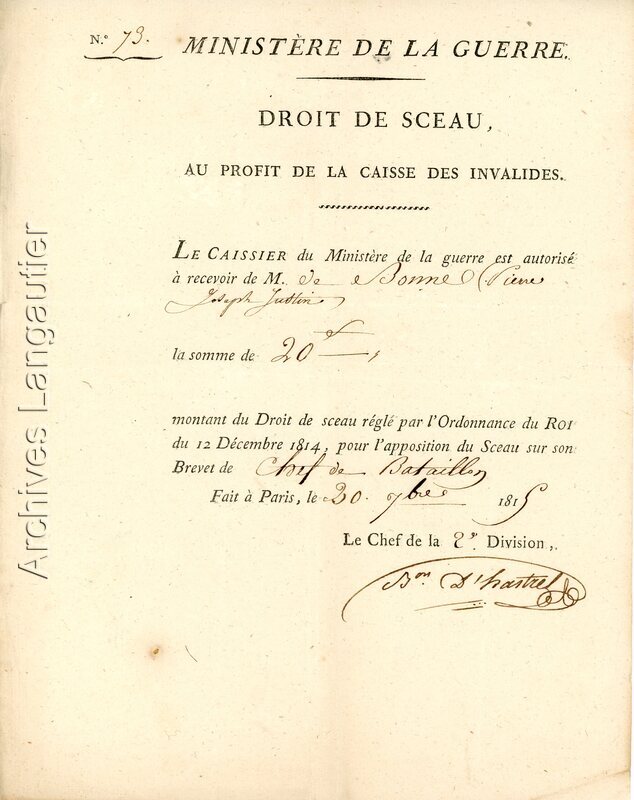 N.° 73.
MINISTÈRE DE LA GUERRE.
DROIT DE SCEAU,
AU PROFIT DE LA CAISSE DES INVALIDES.
LE CAISSIER du Ministère de la guerre est autorisé
à recevoir de M. de Bonne (Pierre
Joseph Justin)
la somme de 20 f
montant du Droit de sceau réglé par l'Ordonnance du ROI
du 12 Décembre 1814, pour l'apposition du Sceau sur son
Brevet de Chef de Bataillon
Fait à Paris, le 20. 9bre 1815
Le Chef de la 2e Division,
Bon D'hastrel
Archives Langautier